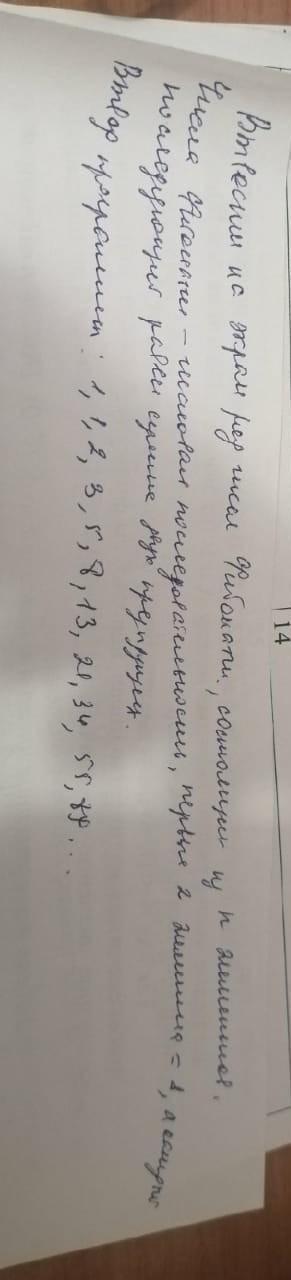 Вывести на экран ряд чисел Фибоначи, состоящий из n элементов.
Числа Фибоначи – числовая последовательность, первые 2 элемента = 1, а каждый
последующий равен сумме двух предыдущих.
Вывод программы: 1, 1, 2, 3, 5, 8, 13, 21, 34, 55, 89...
14